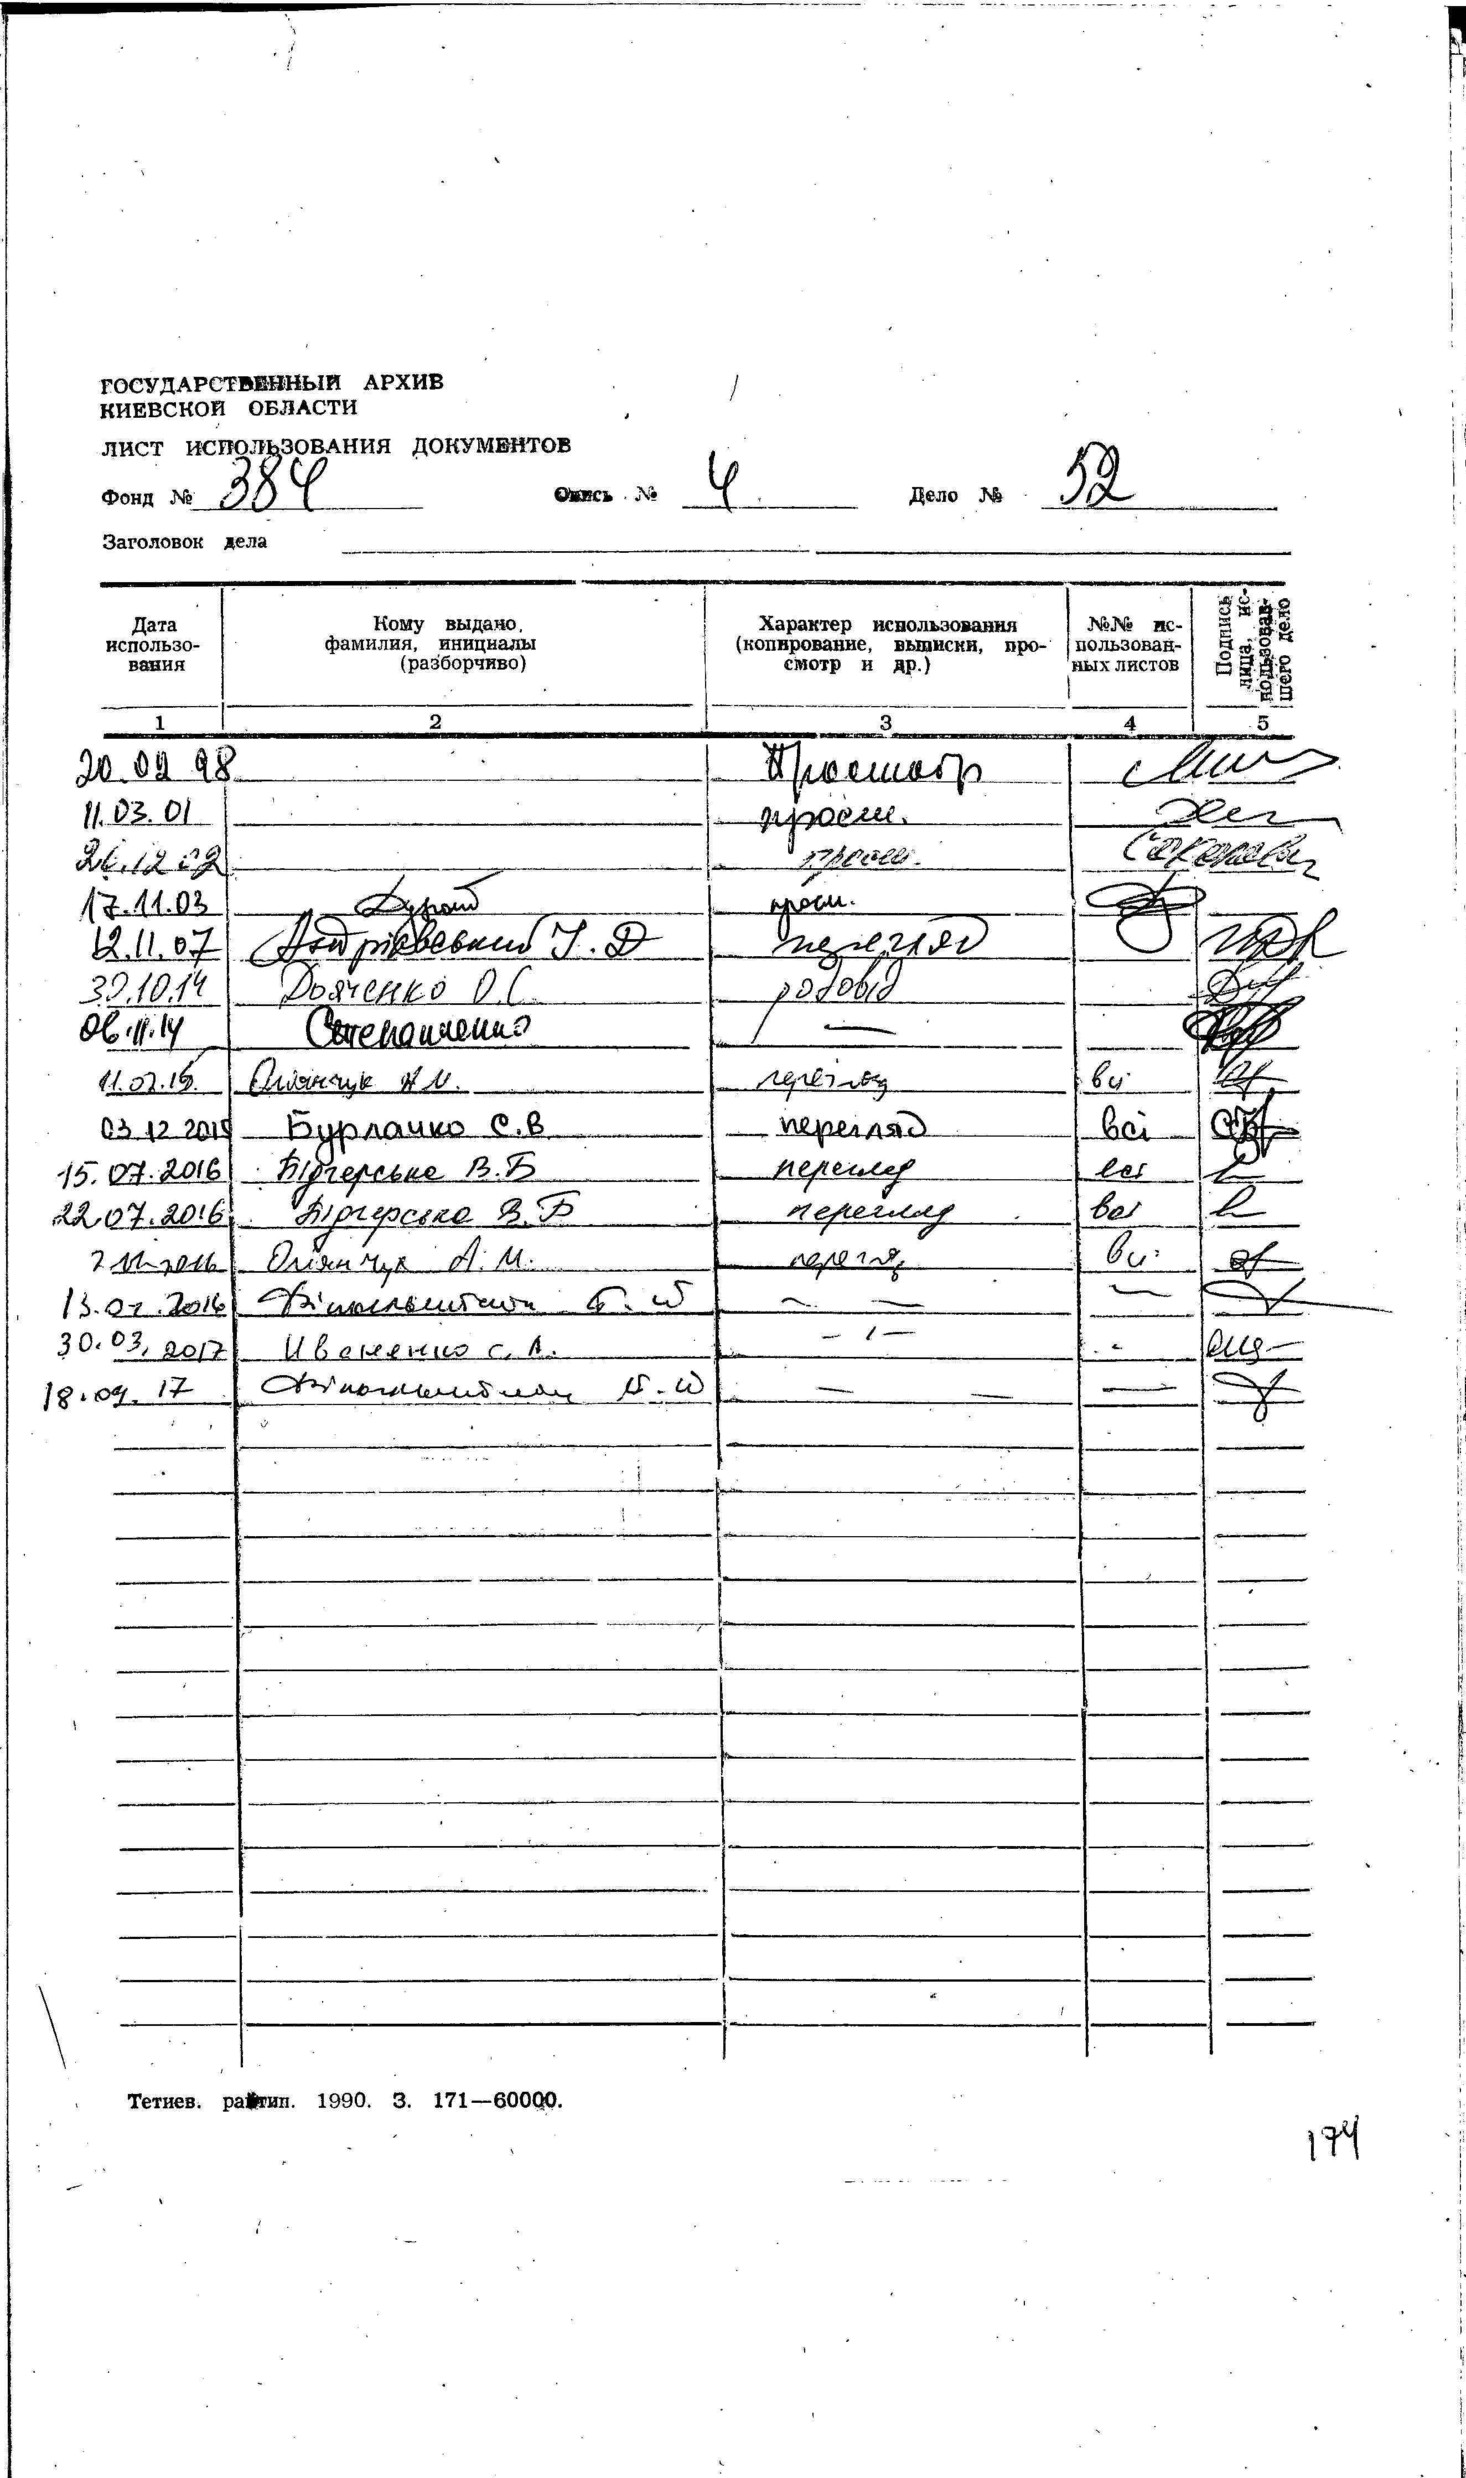 ГОСУДАРСТВЕННЫЙ АРХИВ
КИЕВСКОЙ ОБЛАСТИ
ЛИСТ ИСПОЛЬЗОВАНИЯ ДОКУМЕНТОВ
Фонд № 384 Опись № 4 Дело № 52
Заголовок дела
Дата использо-вания
Кому выдано, фамилия, инициалы (разборчиво)
Характер использования (копирование, выписки, про-смотр и др.)
№№ ис-пользован-ных листов
Подпись лица, ис-пользовав-шего дело
1 2 3 4 5
20.02 98 Просмотр
11.03.01 просм.
26.12.02 просм.
17.11.03 просм.
12.11.07 Андрієвський І. Д перегляд
30.10.14 Дяченко О.С. родовід
06.11.14 Степаненко —
11.02.15. Олянчук А М. перегляд всі
03 12 2015 Бурлачко С.В перегляд всі
15.07.2016 Підгерське В.Б перегляд всі
22.07.2016 Підгерське В.Б перегляд всі
2016 Олянчук А. М. перегляд всі
13.02.2016 — —
30.03.2017 Иваненко С. А. — ı —
18.09.17 — — —
Тетиев. райтип. 1990. З. 171—60000.
174